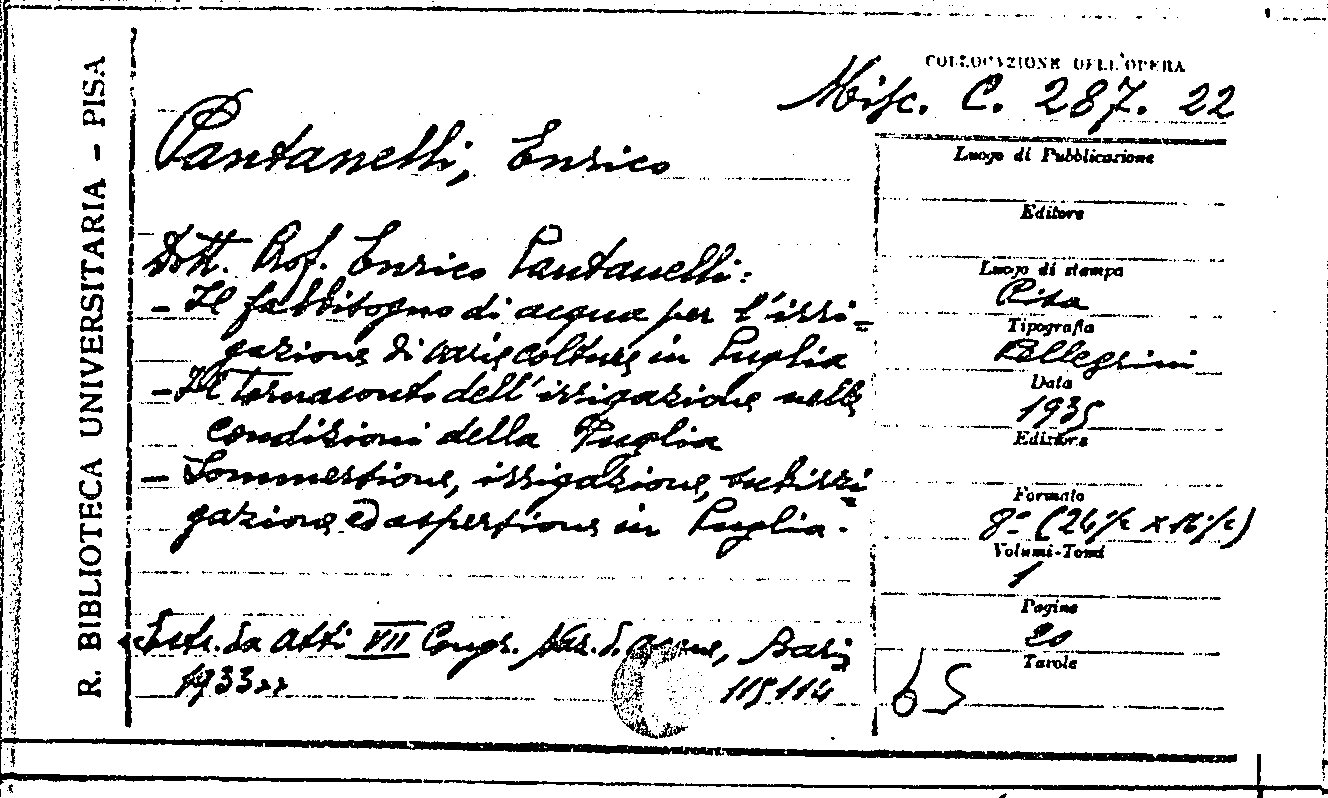 R. BIBLIOTECA UNIVERSITARIA - PISA
COLLOCAZIONE DELL'OPERA
Misc. C. 287. 22
Pantanelli, Enrico
Dott. Prof. Enrico Pantanelli:
- Il fabbisogno di acqua per l'irri=
gazione di varie colture in Puglia
- Il tornaconto dell'irrigazione nelle
condizioni della Puglia
- Sommersione, irrigazione, subirri=
gazione ed aspersione in Puglia.
Estr. da Atti VII Congr. Naz. d. acque, Bari
1933>>
115114
Luogo di Pubblicazione
Editore
Luogo di stampa
Pisa
Tipografia
Pellegrini
Data
1935
Editore
Formato
8° (24½ x 16½)
Volumi-Tomi
1
Pagine
20
Tavole
65